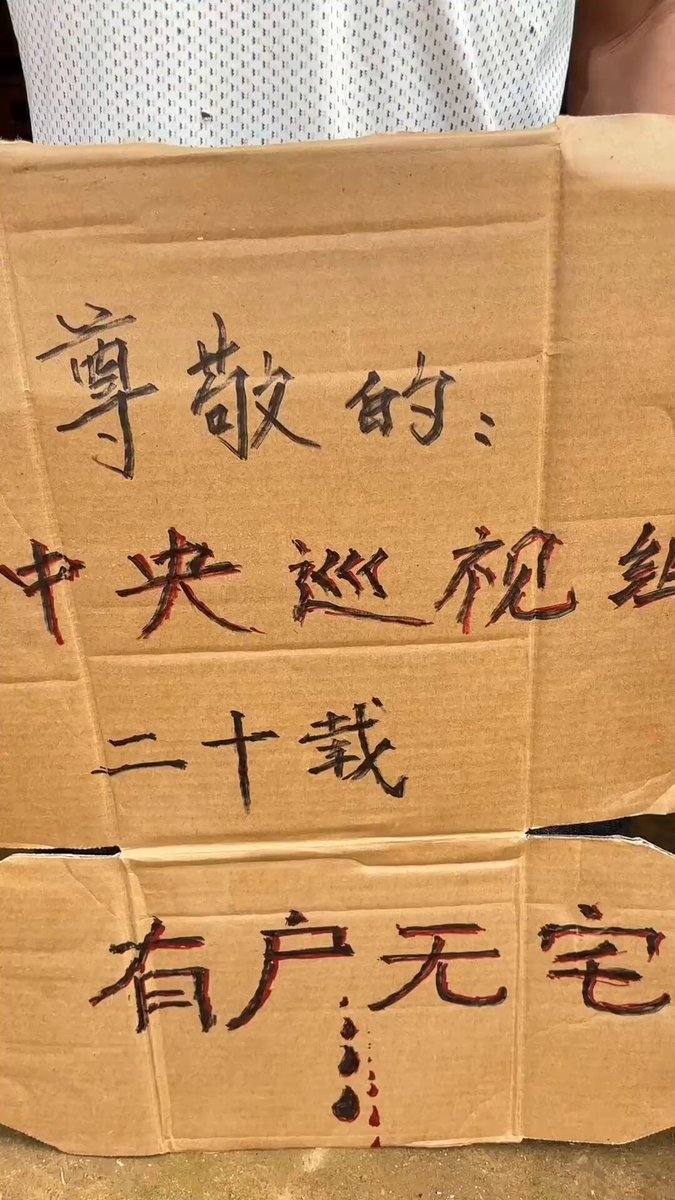 尊敬的:
中央巡视组
二十载
有户无宅